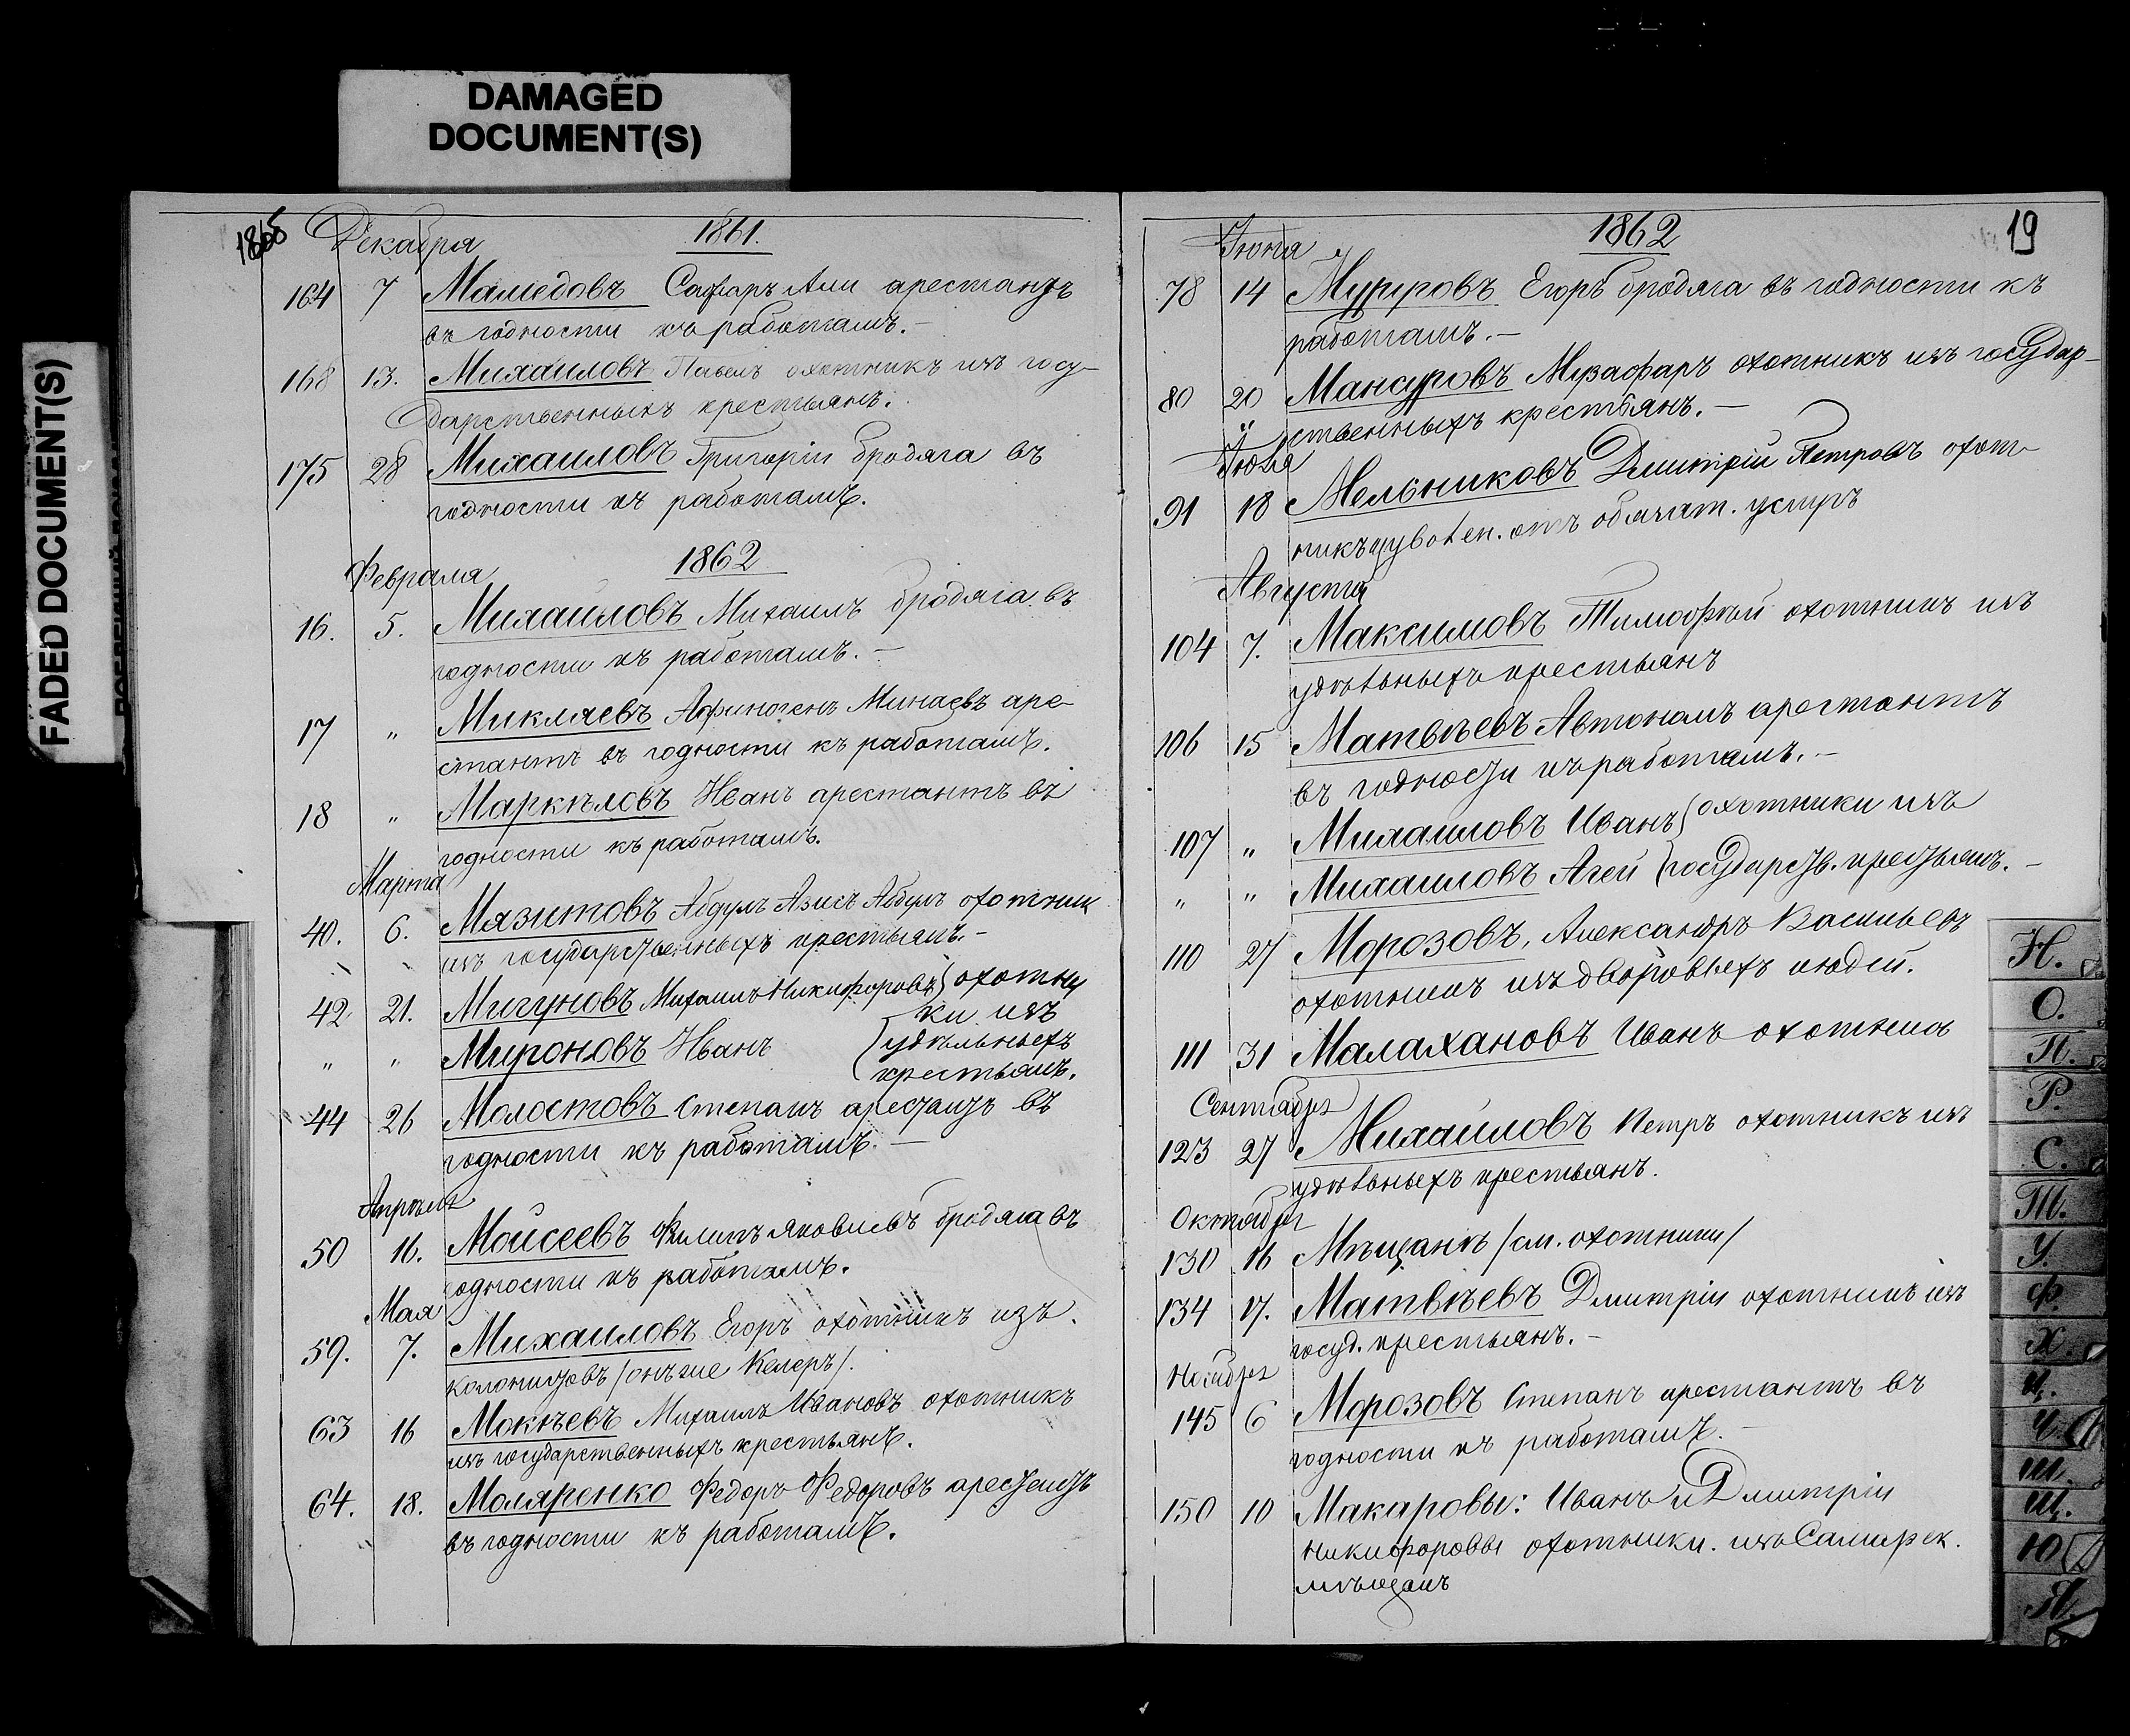 DAMAGED
DOCUMENT(S)
FADED DOCUMENT(S)
Декабря 1861.
164 7 Мамедовъ Сафаръ Али арестантъ
въ годности къ работамъ.-
168 13. Михаиловъ Павелъ охотникъ изъ госу-
дарственныхъ крестьянъ.
175 28 Михаиловъ Григоріи бродяга въ
годности къ работамъ.
Февраля 1862
16. 5. Михаиловъ Михаилъ бродяга въ
годности къ работамъ.-
17 " Микляевъ Афиногенъ Минаевъ аре-
стантъ въ годности къ работамъ.
18 " Маркѣловъ Иванъ арестантъ въ
годности къ работамъ.
Марта
40. 6. Мязитовъ Абдулъ Азисъ Абдулъ охотник
изъ государственныхъ крестьянъ.-
42 21. Мигуновъ Михаилъ Никифоровъ охотни
ки изъ
" " Мироновъ Иванъ удѣльныхъ
крестьянъ.
44 26 Молостовъ Степанъ арестантъ въ
годности къ работамъ.-
Апрѣля
50 16. Моисеевъ Филипъ Яковлевъ бродяга въ
годности къ работамъ.
Мая
59. 7. Михаиловъ Егоръ охотникъ изъ
колонистовъ /онъ же Келеръ/.
63 16 Мокѣевъ Михаилъ Ивановъ охотникъ
изъ государственныхъ крестьянъ.
64. 18. Моляренко Федоръ Федоровъ арестантъ
въ годности къ работамъ.
Іюня 1862 19
78 14 Егоръ бродяга въ годности къ
работамъ.-
80 20 Мансуровъ Музафаръ охотникъ изъ государ-
ственныхъ крестьянъ.-
Іюля
91 18 Мельниковъ Дмитрій Петровъ охот-
никъ отъ
Августа
104 7. Максимовъ Тимофѣй охотникъ изъ
удѣльныхъ крестьянъ
106 15 Матвѣевъ Автономъ арестантъ
въ годности къ работамъ.-
107 " Михаиловъ Иванъ охотники изъ
" " Михаиловъ Агей государств. крестьянъ.-
110 27 Морозовъ, Александръ Васильевъ
охотникъ изъ дворовыхъ людей.
111 31 Малахановъ Иванъ охотникъ
Сентября
123 27 Михаиловъ Петръ охотникъ изъ
удѣльныхъ крестьянъ.
Октября
130 16 Мѣщанъ /см. охотники/
134 17. Матвѣевъ Дмитріи охотникъ изъ
госуд. крестьянъ.-
Ноября
145 6 Морозовъ Степанъ арестантъ въ
годности къ работамъ.-
150 10 Макаровы: Иванъ и Дмитріи
Никифоровы охотники. изъ Самарск.
мѣщанъ
Н.
О.
П.
Р.
С.
Т.
У.
Ф.
Х.
Ц.
Ч.
Ш.
Щ.
Ю
Я.